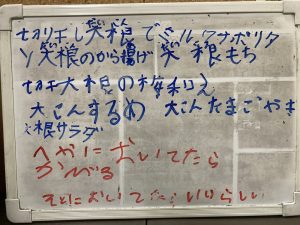 切り干し大根でミルクナポリタ
ン 大根のから揚げ 大根もち
切干大根の梅和え
大こんするめ 大こんたまごやき
大根サラダ
へやにおいてたら
かびる
そとにおいてたらいいらしい